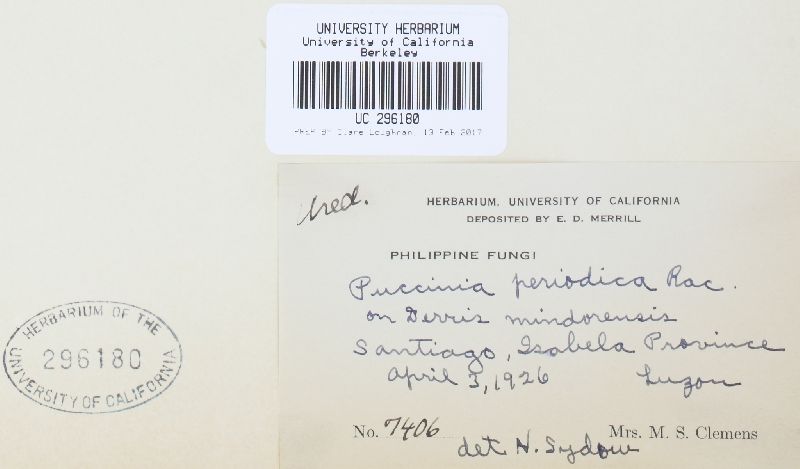 UNIVERSITY HERBARIUM
University of California
Berkeley
UC 296180
PREP BY Clare Loughran, 13 Feb 2017
Ured.
HERBARIUM, UNIVERSITY OF CALIFORNIA
DEPOSITED BY E. D. MERRILL
PHILIPPINE FUNGI
Puccinia periodica Rac.
on Derris mindorensis
Santiago, Isabela Province
April 3, 1926 Luzon
No. 7406 Mrs. M. S. Clemens
det H. Sydow
HERBARIUM OF THE
296180
UNIVERSITY OF CALIFORNIA